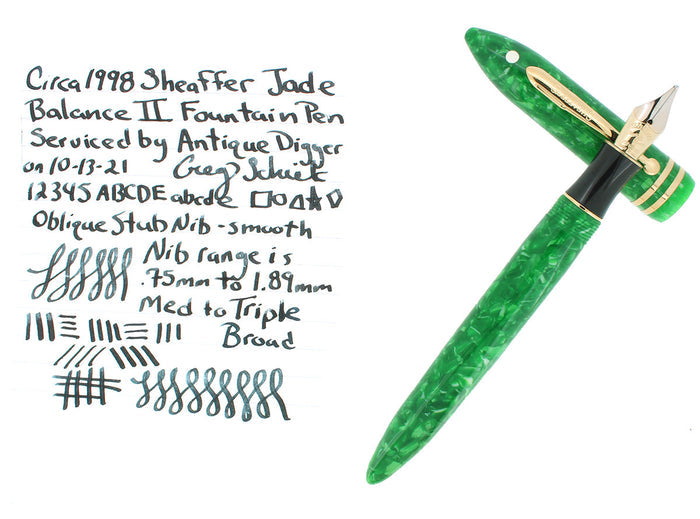 Circa 1998 Sheaffer Jade
Balance II Fountain Pen
Serviced by Antique Digger
on 10-13-21
12345 ABCDE abcde
Oblique Stub Nib - smooth
Nib range is
.75mm to 1.89mm
Med to Triple
Broad